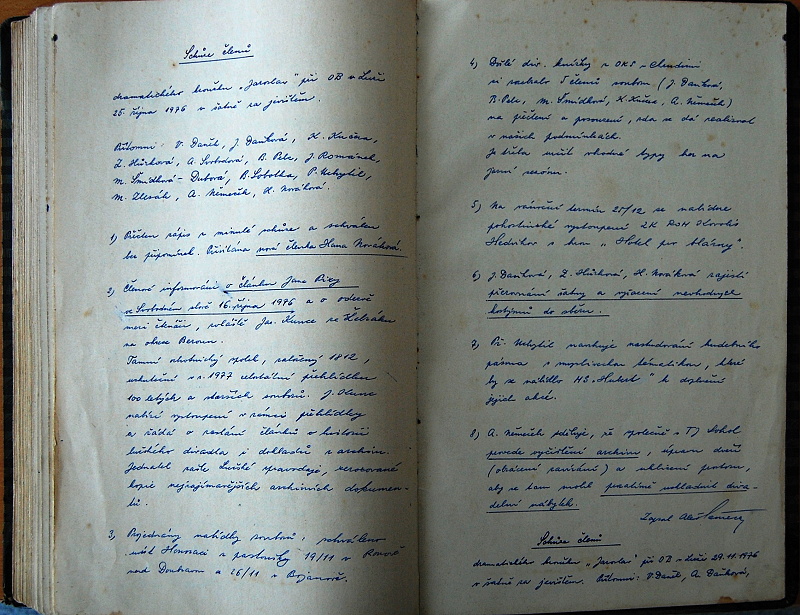 Schůze členů
dramatického kroužku „Jaroslav" při OB v Luži
25. října 1976 v šatně za jevištěm.
Přítomni: V. Daněk, J. Daňková, K. Kučera,
Z. Hůrková, A. Svobodová, B. Petr, J. Románek,
M. Šmídková-Dubová, B. Sobotka, P. Uchytil,
M. Alesák, A. Němeček, H. Nováková.
1) Přečten zápis z minulé schůze a schválen
bez připomínek. Přivítána nová členka Hana Nováková.
2) Členové informováni o článku Jana Pixy
ve Svobodném slově 16. října 1976 a o odezvě
mezi čtenáři, zvláště Jar. Kunce ze Žebráku
na okrese Beroun.
Tamní ochotnický spolek, založený 1812,
uskuteční v r. 1977 celostátní přehlídku
100 letých a starších souborů. J. Kunc
nabízí vystoupení v rámci přehlídky
a žádá o zaslání článků o historii
lužského divadla i dokladů z archivu.
Jednatel zašle Lužské zpravodaje, xeroxované
kopie nejzajímavějších archivních dokumen-
tů.
3) Projednány nabídky souborů, schváleno
hrát Honoraci z pastoušky 19/11 v Ronově
nad Doubravou a 26/11 v Bojanově.
4) Došlé div. knížky z OKS v Chrudimi
si rozebralo 5 členů souboru (J. Daňková,
B. Petr, M. Šmídková, K. Kučera, A. Němeček)
na přečtení a posouzení, zda se dá realizovat
v našich podmínkách.
Je třeba určit vhodné typy her na
jarní sezonu.
5) Na vánoční termín 25/12 se nabídne
pohostinské vystoupení ZK ROH
s hrou „Hotel pro blázny".
6) J. Daňková, Z. Hůrková, H. Nováková zajistí
přerovnání šatny a vyřazení nevhodných
kostýmů do sběru.
7) Př. Uchytil navrhuje nastudování hudebního
pásma s mysliveckou tématikou, které
by se nabídlo HS „Hubert" k doplnění
jejich akcí.
8) A. Němeček sděluje, že společně s TJ Sokol
provede vyčištění archivu, úpravu dveří
(obrácení zavírání) a uklizení prostoru,
aby se tam mohl prozatímně uskladnit diva-
delní nábytek.
Zapsal Aleš Němeček
Schůze členů
dramatického kroužku „Jaroslav" při OB v Luži 29.11.1976
v šatně za jevištěm. Přítomni: V. Daněk, A. Daňková,